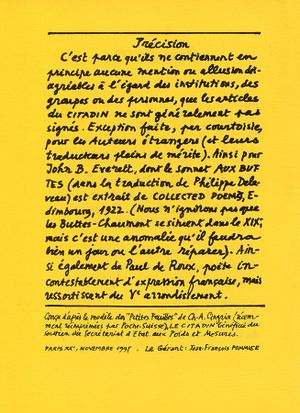 Précision
C'est parce qu'ils ne contiennent en
principe aucune mention ou allusion dés-
agréables à l'égard des institutions, des
groupes ou des personnes, que les articles
du CITADIN ne sont généralement pas
signés. Exception faite, par courtoisie,
pour les Auteurs étrangers (et leurs
traducteurs pleins de mérite). Ainsi pour
John B. Everett, dont le sonnet AUX BUT
TES (dans la traduction de Philippe Dela-
veau) est extrait de COLLECTED POEMS, E-
dimbourg, 1922. (Nous n'ignorons pas que
les Buttes-Chaumont se situent dans le XIX,
mais c'est une anomalie qu'il faudra
bien un jour ou l'autre réparer). Ain-
si également de Paul de Roux, poète in-
contestablement d'expression française, mais
ressortissant du Ve arrondissement.
Conçu d'après le modèle des "Petites Feuilles" de Ch-A. Cingria (récem-
ment réimprimées par Poche-Suisse), LE CITADIN bénéficie du
soutien du Secrétariat d'Etat aux Poids et Mesures.
PARIS XXe, NOVEMBRE 1995. Le Gérant: Jean-François POMMIER